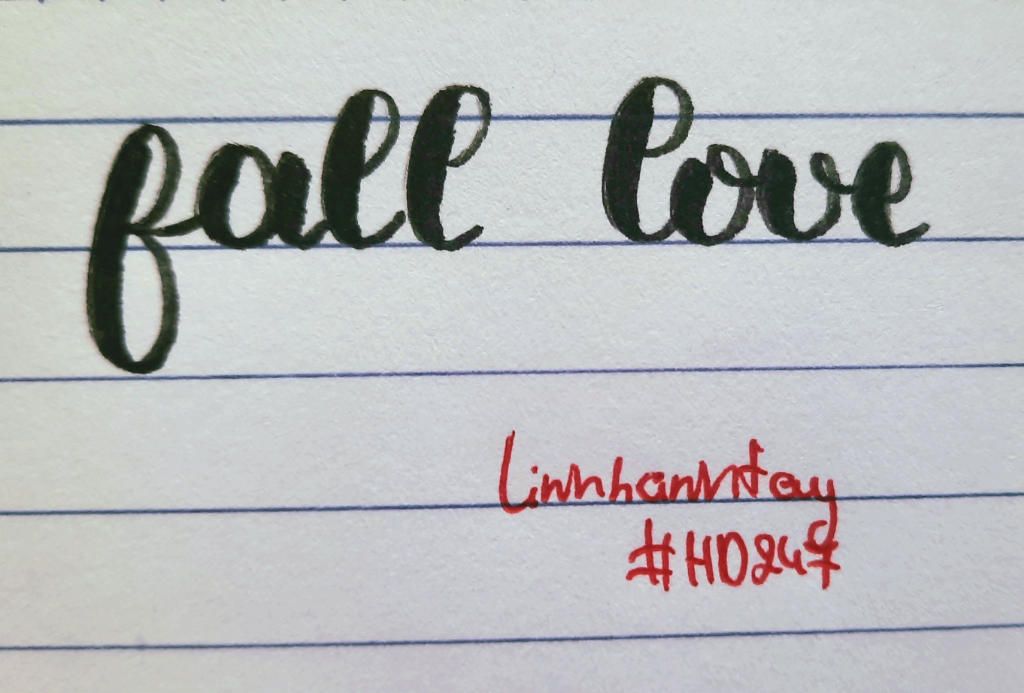 fall love
Linhhanhtay
#HD247